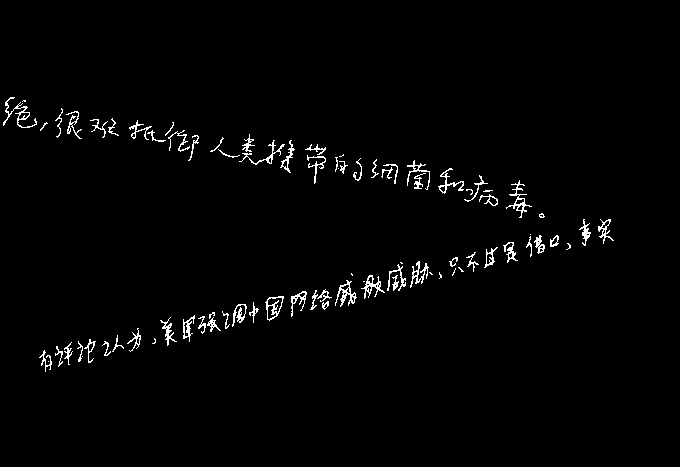 绝，很难抵御人类携带的细菌和病毒。
有评论认为，美军强调中国网络威胁，只不过是借口，事实